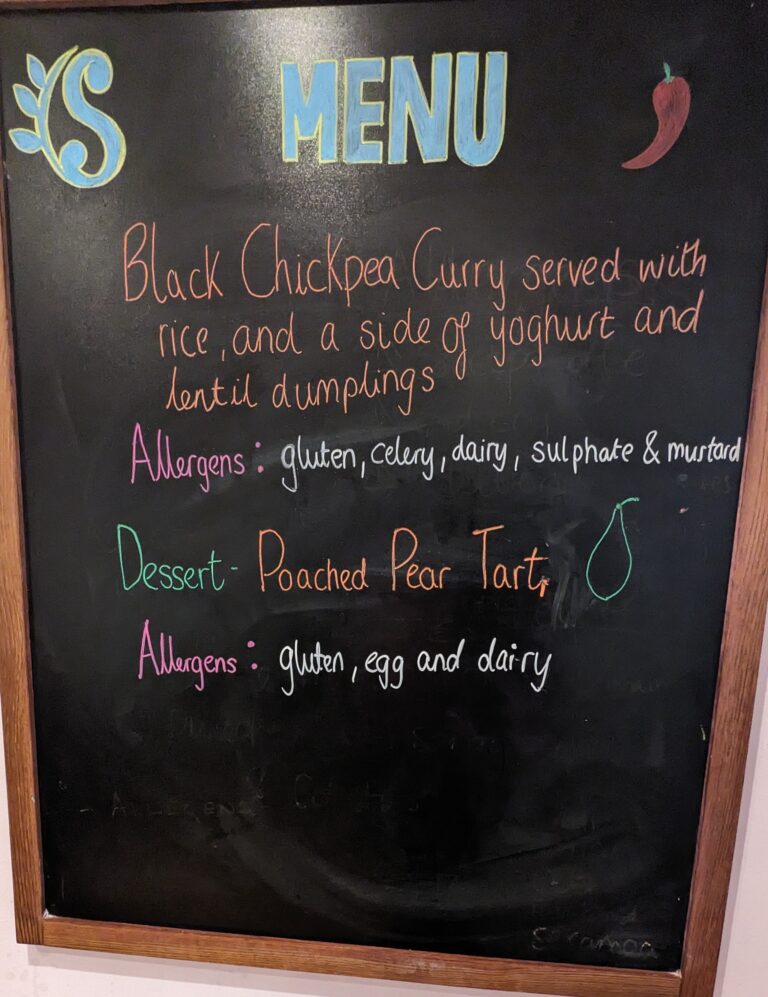 S MENU
Black Chickpea Curry served with
rice, and a side of yoghurt and
lentil dumplings
Allergens: gluten, celery, dairy, sulphate & mustard
Dessert- Poached Pear Tart
Allergens: gluten, egg and dairy